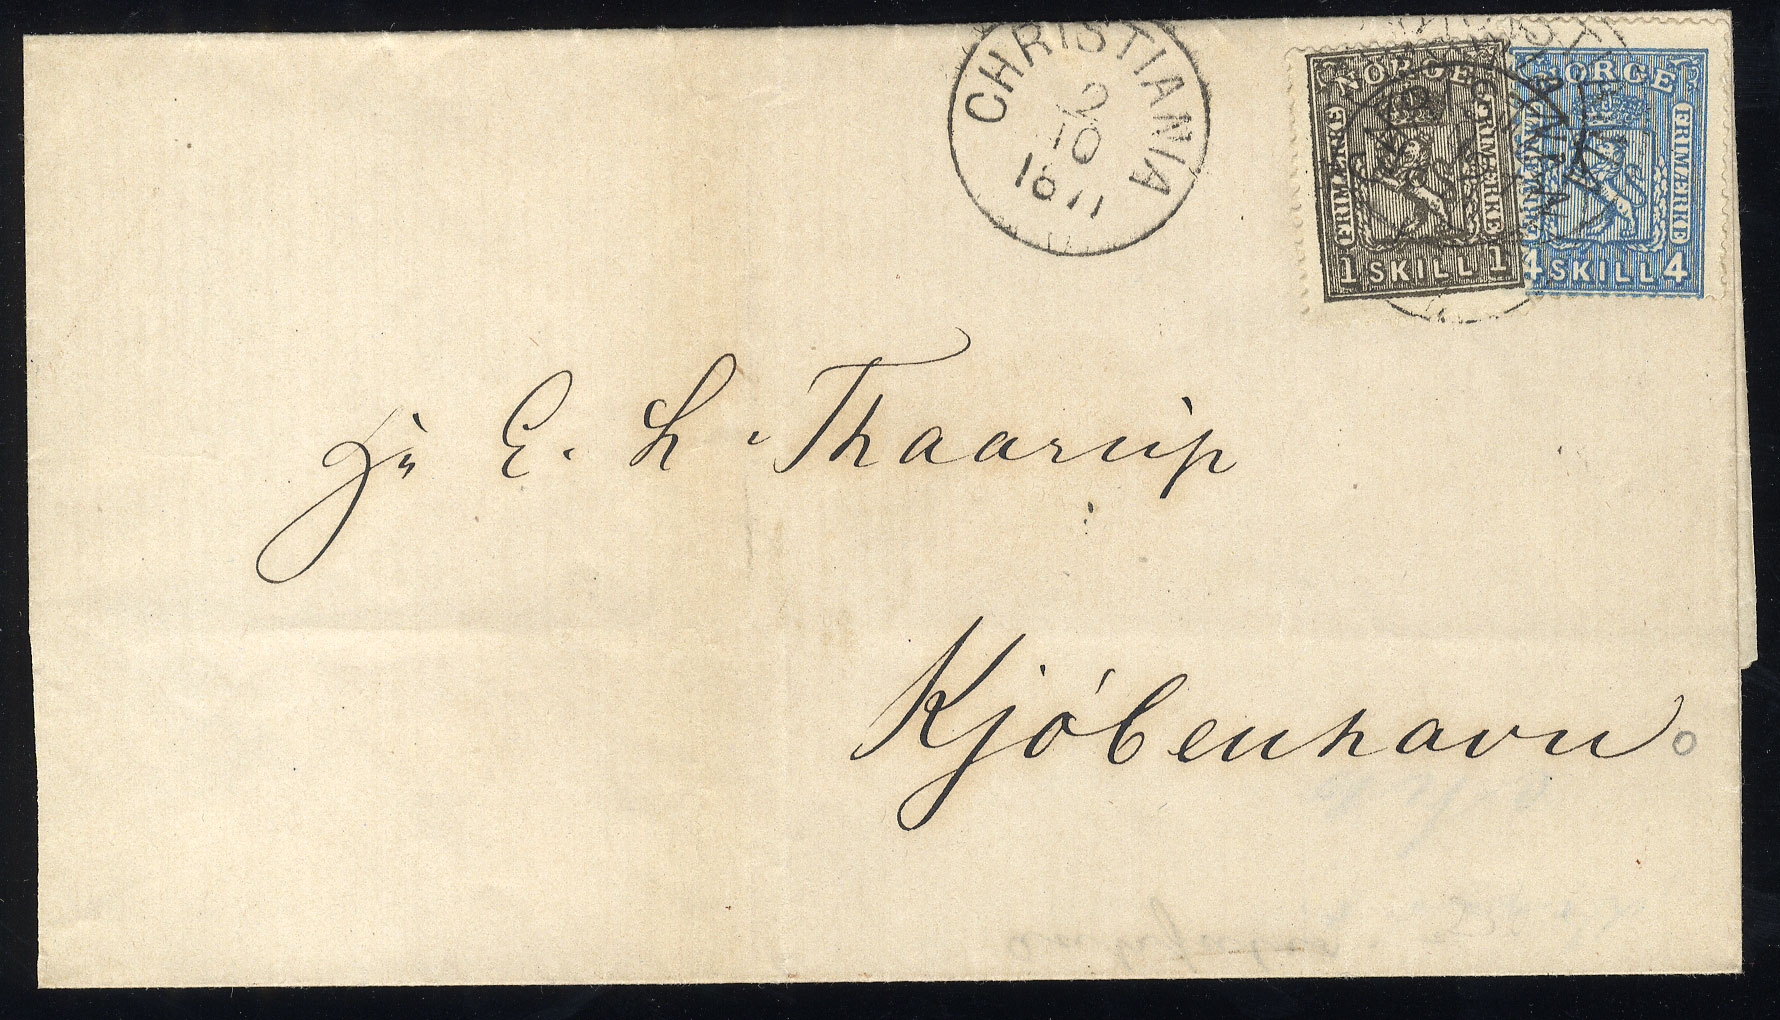 CHRISTIANIA
2
10
1871
NORGE
FRIMÆRKE
FRIMÆRKE
1 SKILL 1
NORGE
FRIMÆRKE
4 SKILL 4
Hr E. L. Thaarup
Kjóbenhavn